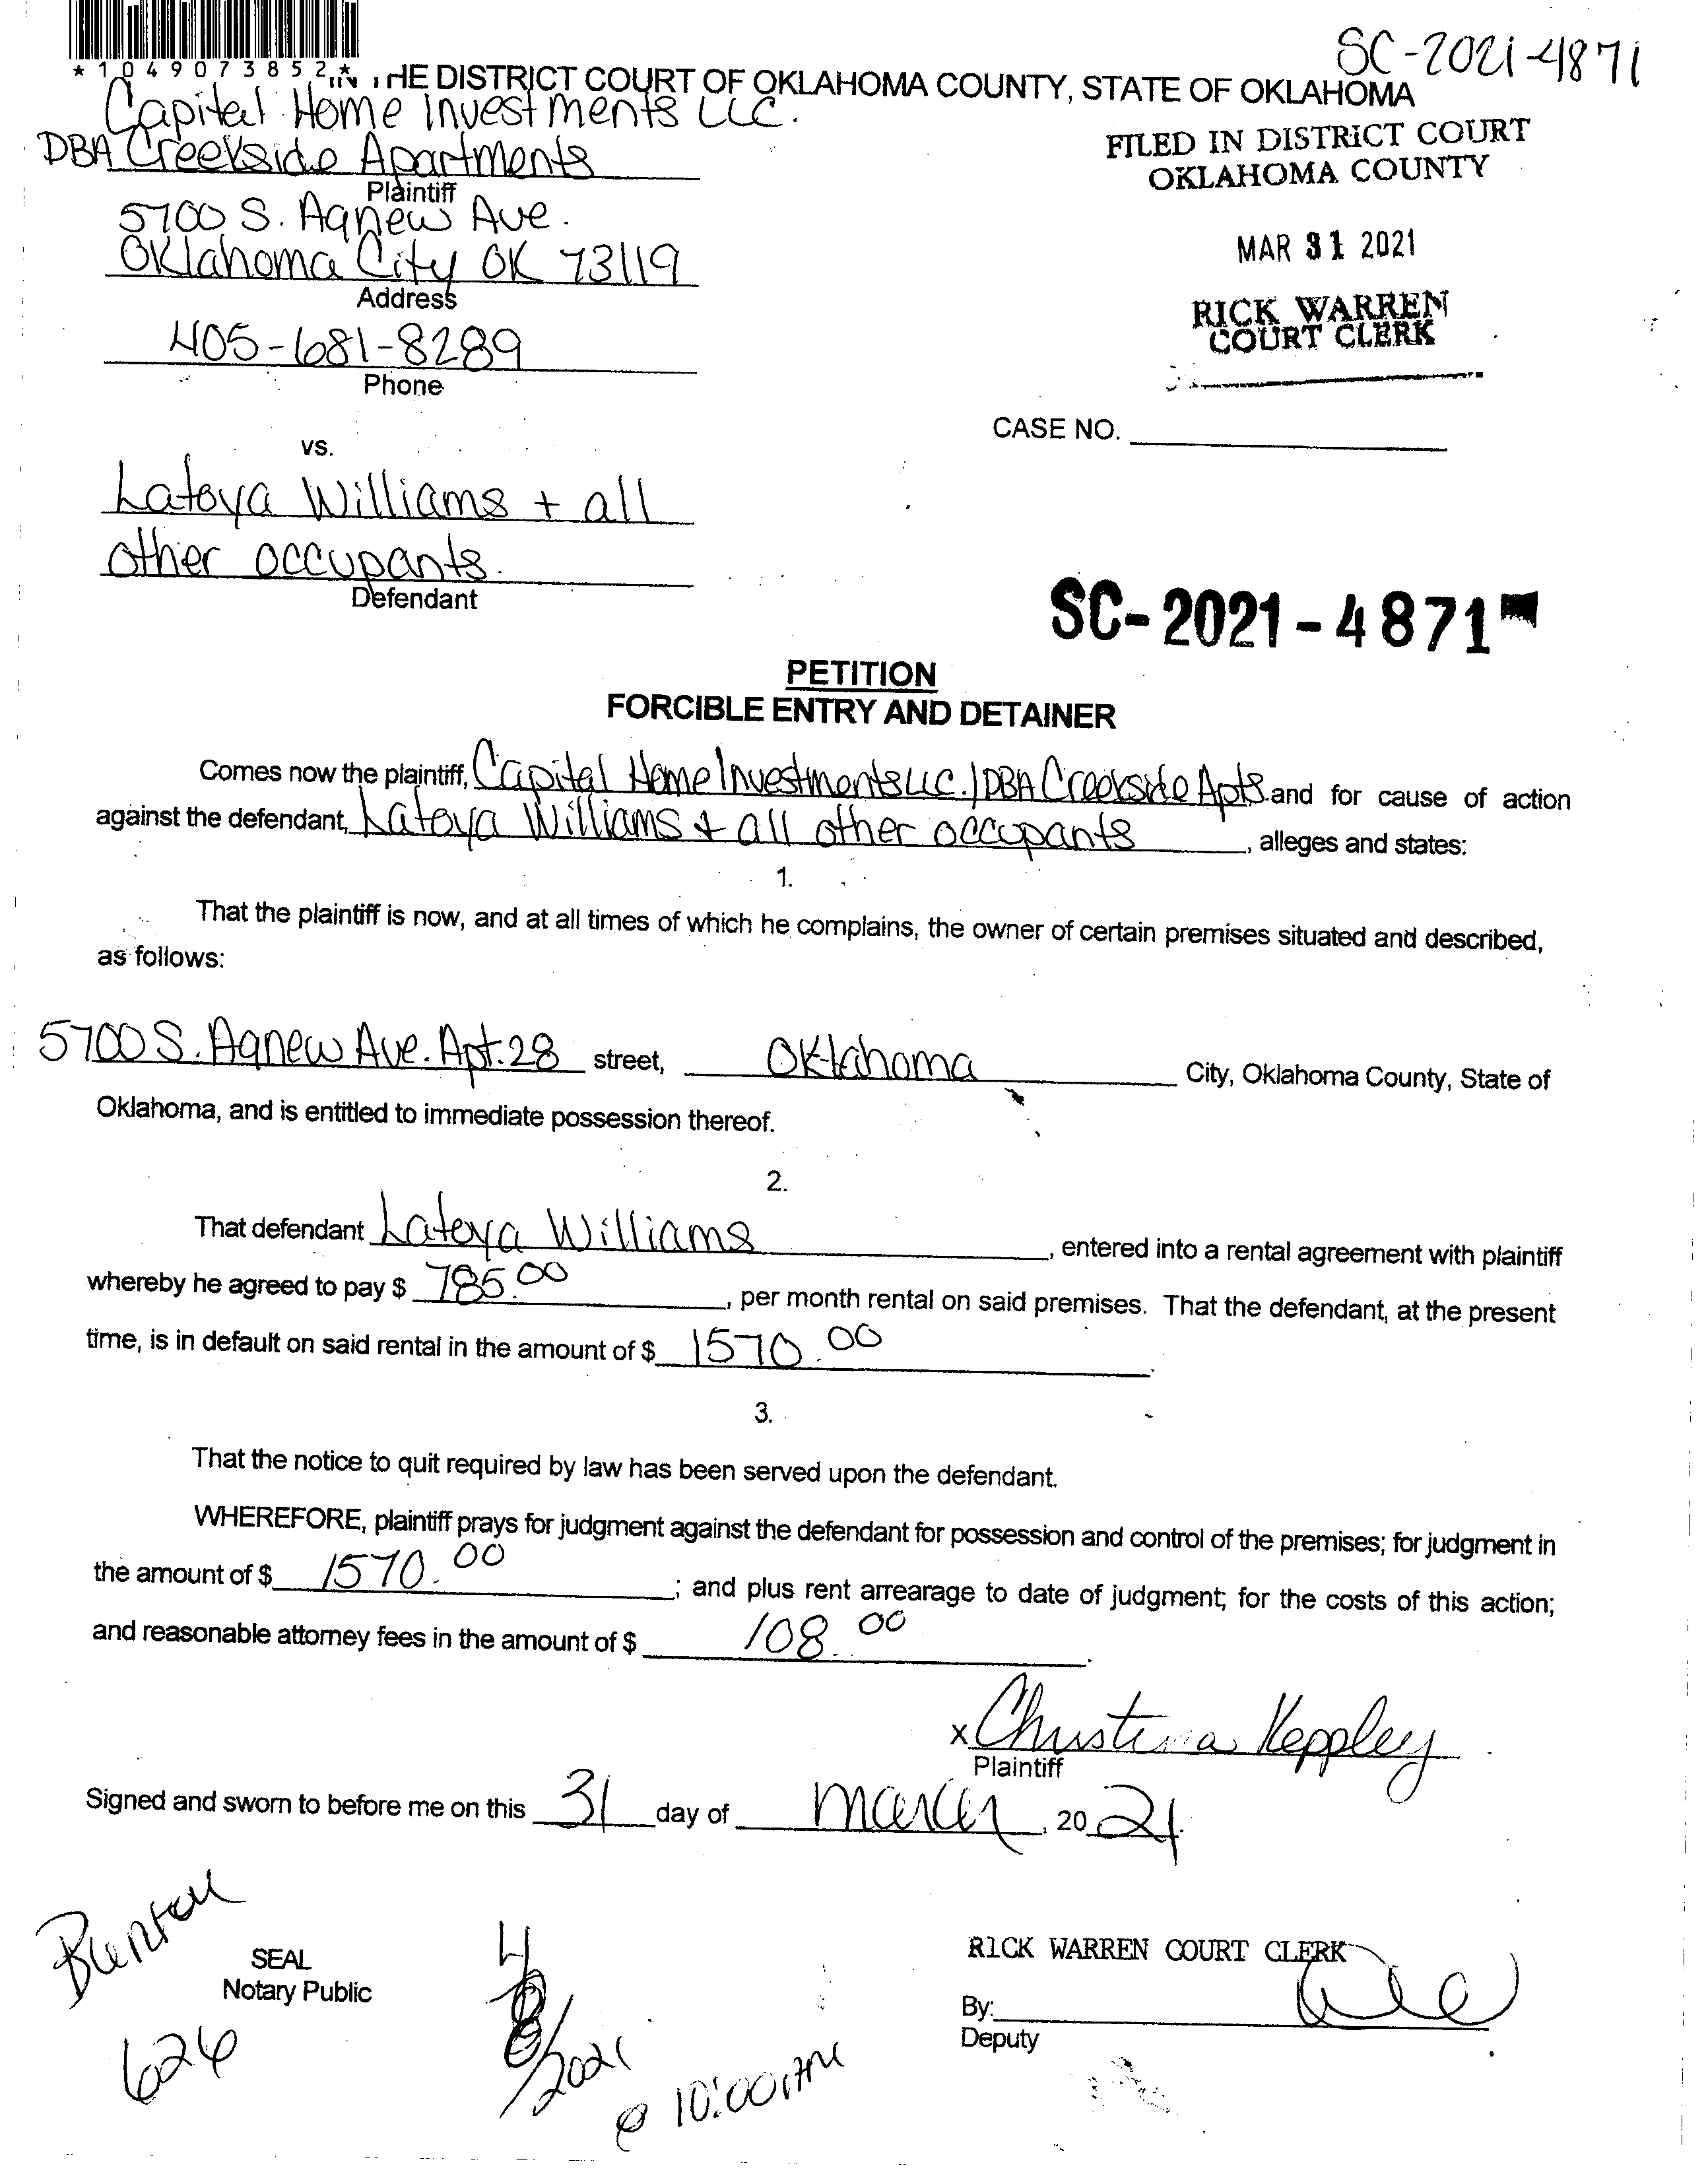 *1049073852*
SC-2021-4871
IN THE DISTRICT COURT OF OKLAHOMA COUNTY, STATE OF OKLAHOMA
Capital Home Investments LLC.
DBA Creekside Apartments
Plaintiff
5700 S. Agnew Ave.
Oklahoma City OK 73119
Address
405-681-8289
Phone
FILED IN DISTRICT COURT
OKLAHOMA COUNTY
MAR 31 2021
RICK WARREN
COURT CLERK
CASE NO.
vs.
Latoya Williams + all
other occupants.
Defendant
SC-2021-4871
PETITION
FORCIBLE ENTRY AND DETAINER
Comes now the plaintiff, Capital Home Investments LLC. / DBA Creekside Apts. and for cause of action
against the defendant, Latoya Williams + all other occupants, alleges and states:
1.
That the plaintiff is now, and at all times of which he complains, the owner of certain premises situated and described,
as follows:
5700 S. Agnew Ave. Apt. 28 street, Oklahoma City, Oklahoma County, State of
Oklahoma, and is entitled to immediate possession thereof.
2.
That defendant Latoya Williams, entered into a rental agreement with plaintiff
whereby he agreed to pay $ 785.00, per month rental on said premises. That the defendant, at the present
time, is in default on said rental in the amount of $ 1570.00.
3.
That the notice to quit required by law has been served upon the defendant.
WHEREFORE, plaintiff prays for judgment against the defendant for possession and control of the premises; for judgment in
the amount of $ 1570.00; and plus rent arrearage to date of judgment; for the costs of this action;
and reasonable attorney fees in the amount of $ 108.00.
x Christina Keppley
Plaintiff
Signed and sworn to before me on this 31 day of March, 2021.
Burton
SEAL
Notary Public
626
4
/2021
@ 10:00AM
RICK WARREN COURT CLERK
By:
Deputy